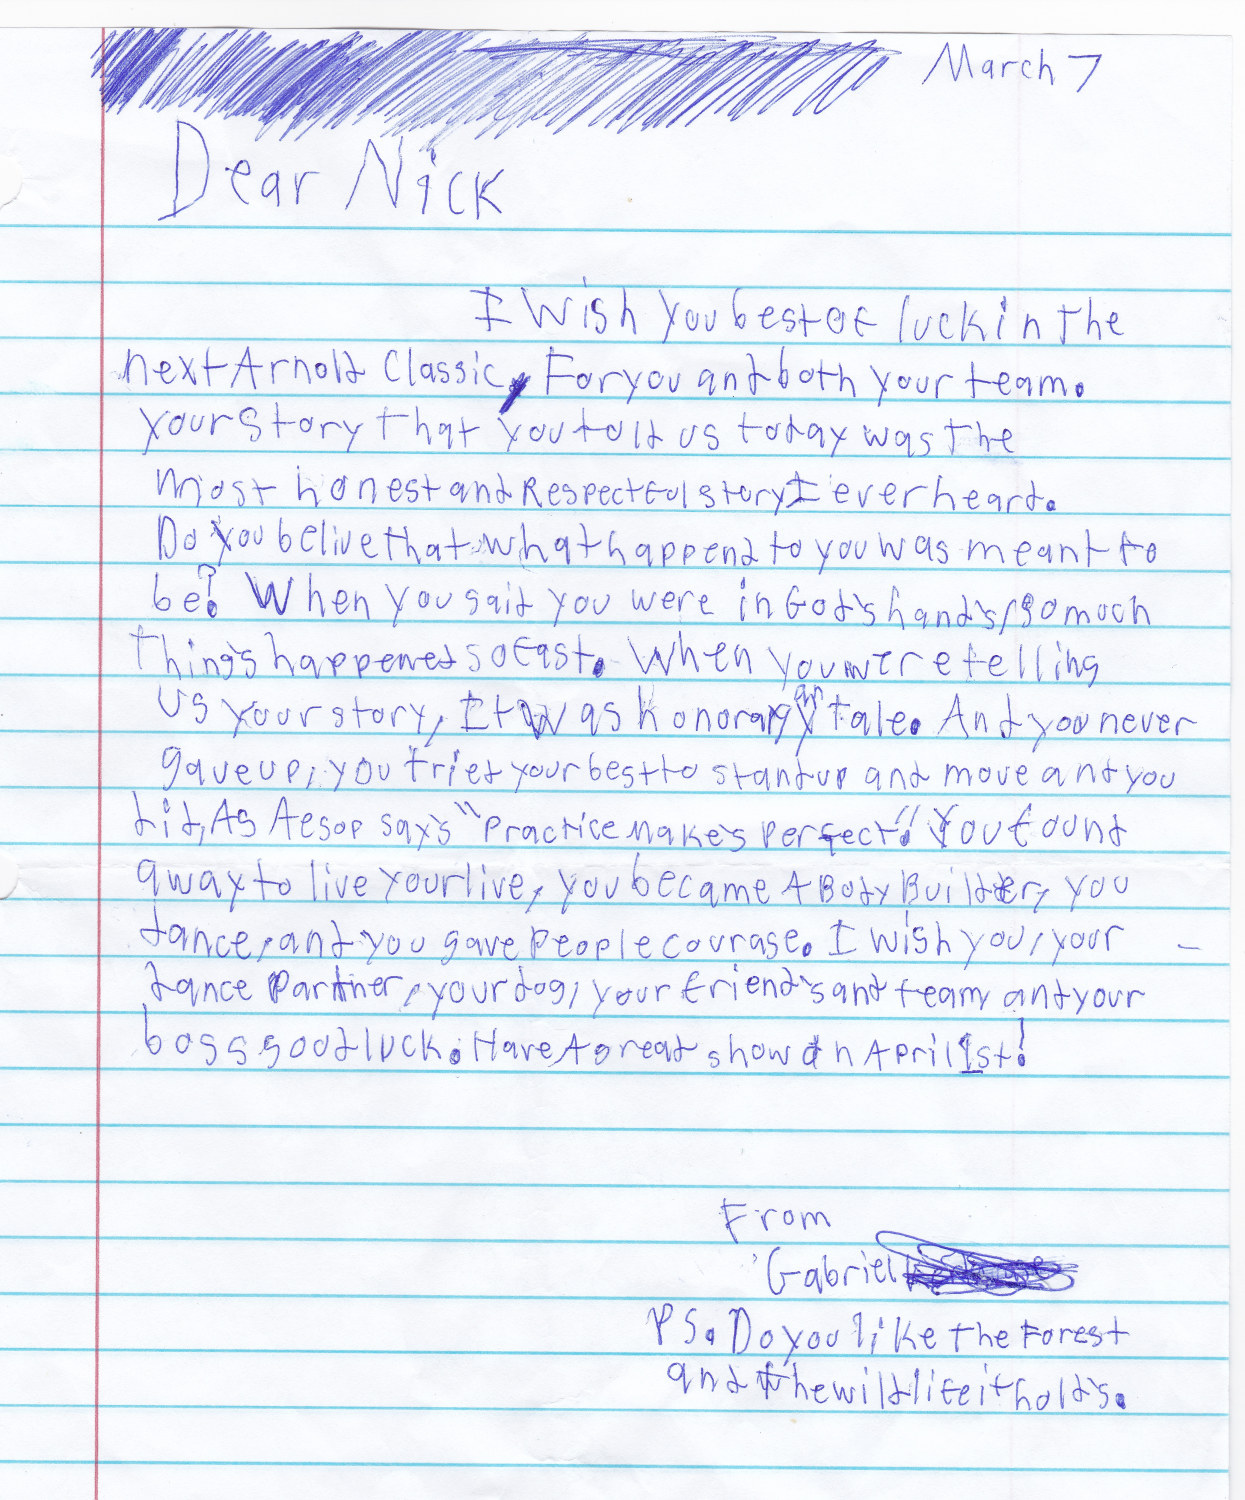 March 7
Dear Nick
I wish you best of luck in the
next Arnold Classic, For you and both your team.
your story that you told us today was the
most honest and Respectful story I ever heard.
Do you belive that what happend to you was meant to
be? When you said you were in God's hands, so much
thing's happened so fast. When you were telling
us your story, It was honorary an tale. And you never
gave up, you tried your best to stand up and move and you
did, As Aesop say's "Practice Make's Perfect". You found
a way to live your live, you became A Body Builder, you
dance, and you gave people courage. I wish you, your
dance Partner, your dog, your friend's and team, and your
boss good luck. Have A great show on April 1st!
From
Gabriel
PS. Do you like the Forest
and the wildlife it hold's.